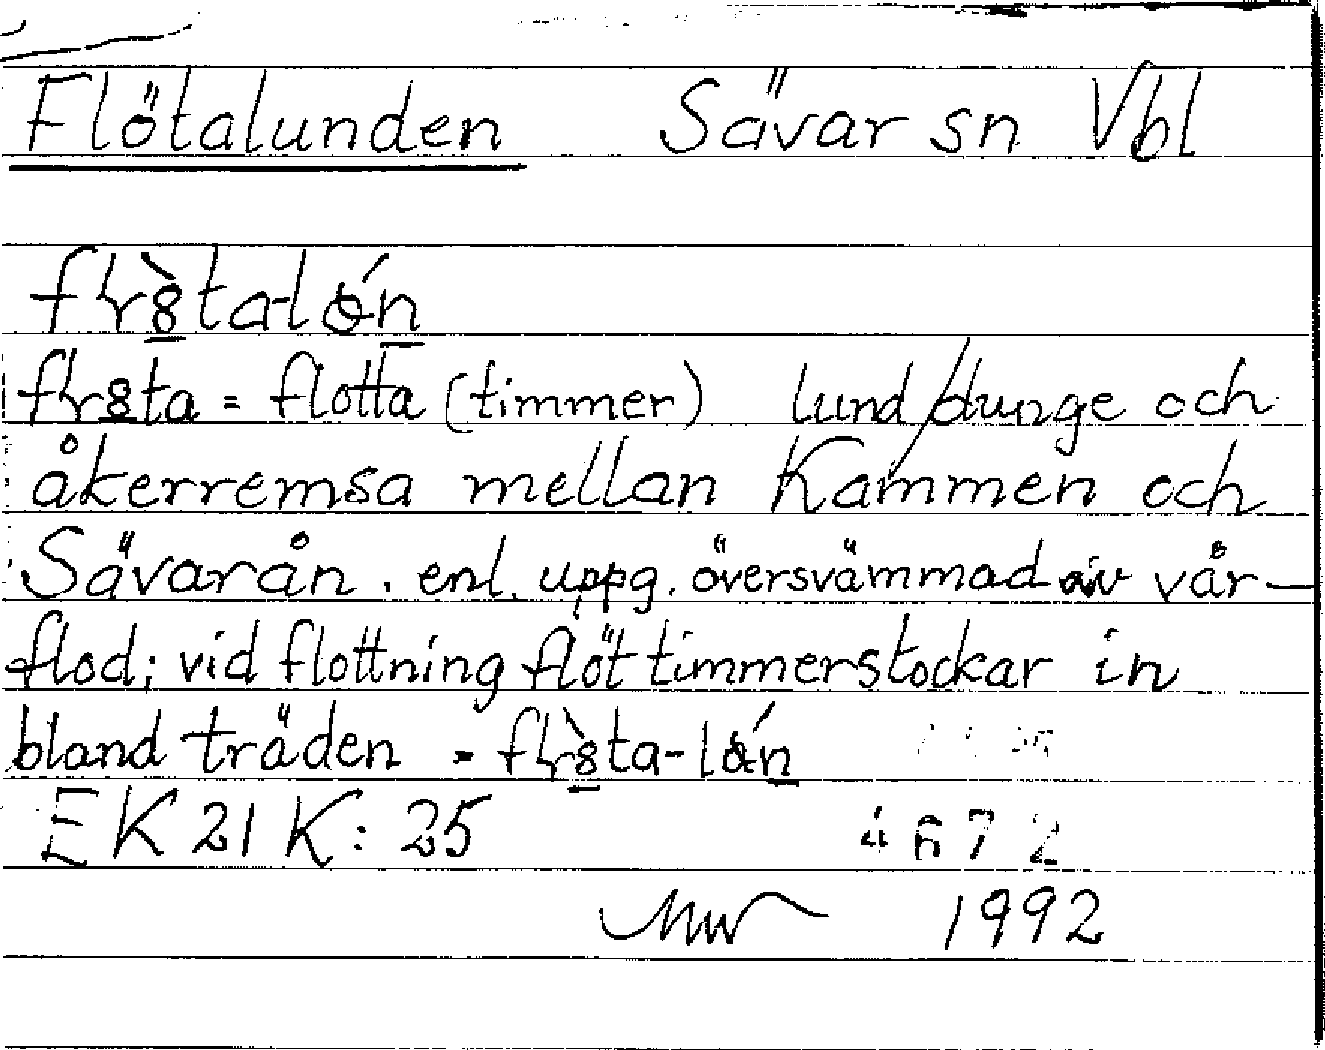 Flötalunden Sävar sn Vbl
= flotta (timmer) lund/dunge och
åkerremsa mellan Kammen och
Sävarån. enl. uppg. översvämmad av vår-
flod; vid flottning flöt timmerstockar in
bland träden =
EK 21 K: 25 4672
1992